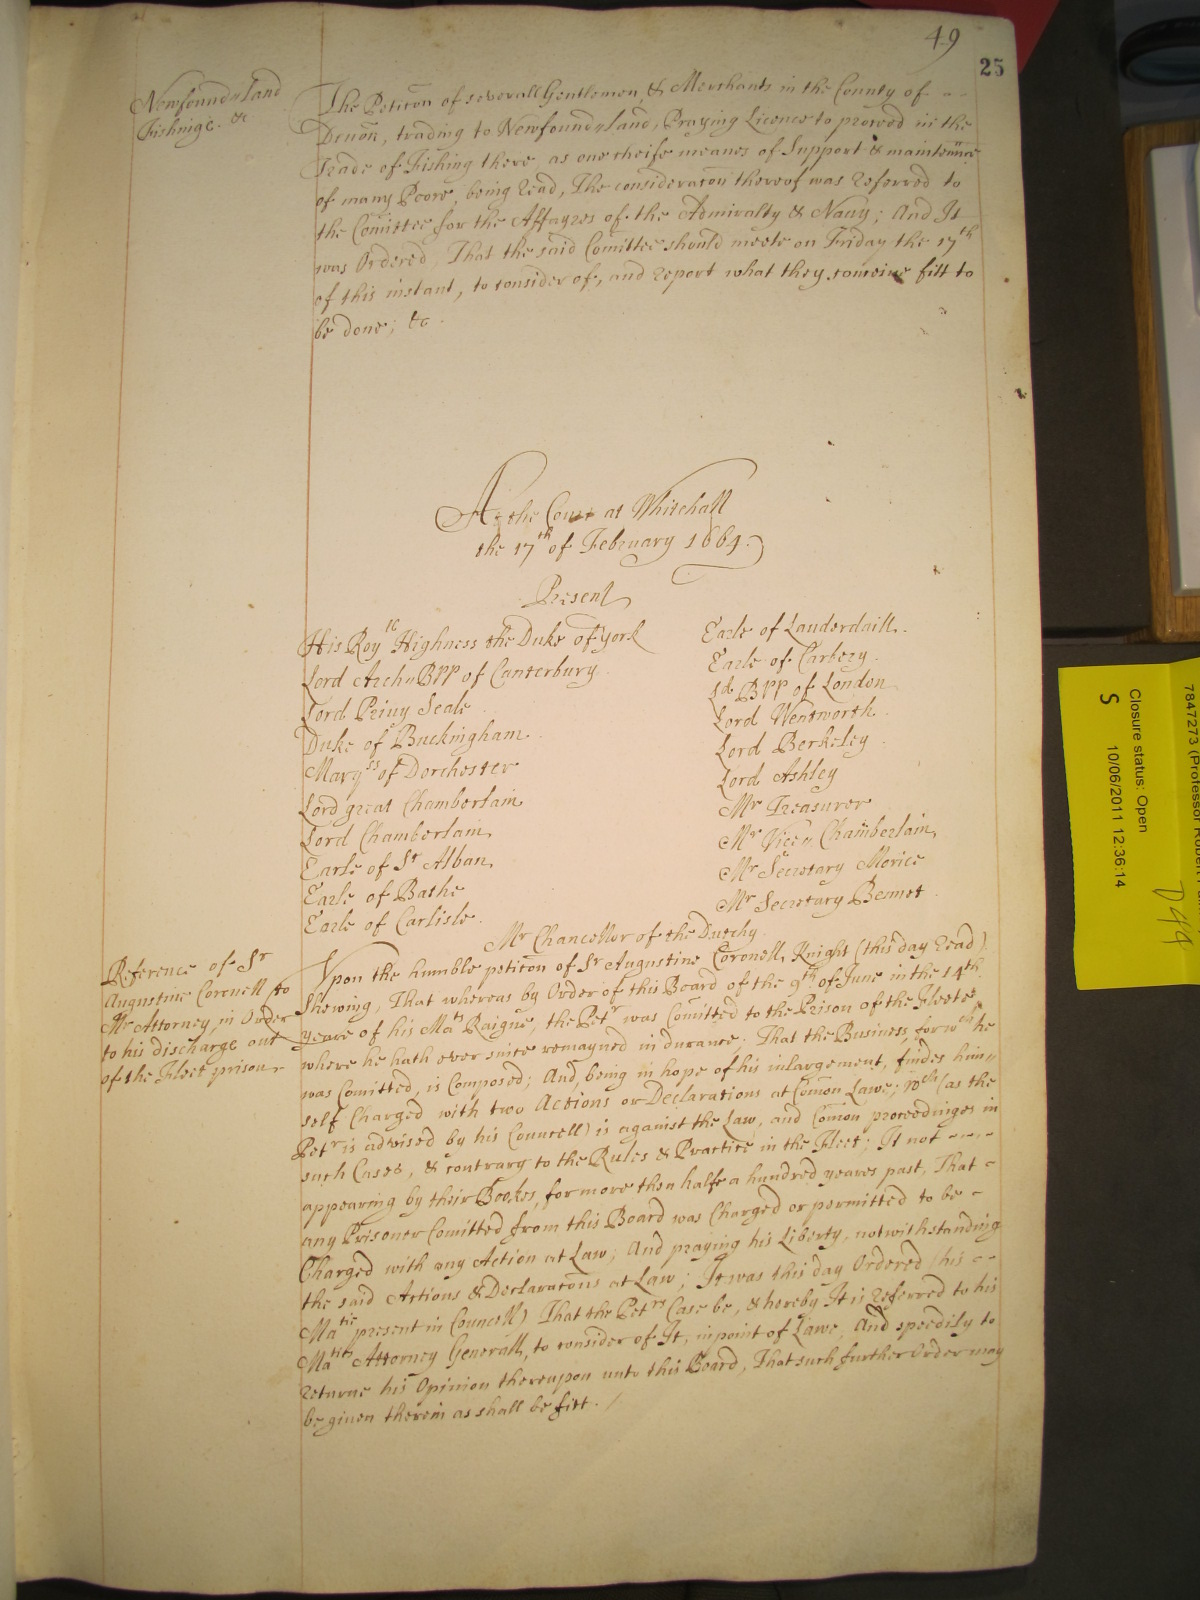 49
25
Newfound„land
Fishinge. &c
The Petic̃on of severall Gentlemen, & Merchants in the County of - -
Devon, trading to Newfound„land, Praying Licence to proceed in the
Trade of Fishing there, as one cheife meanes of Support & maintennce
of many Poore, being Read, The considerac̃on thereof was Referred to
the Com̃ittee for the Affayres of the Admiralty & Navy; And It
was Ordered, That the said Com̃ittee should meete on Friday the 17th
of this instant, to consider of, and report what they conceive fitt to
be done; &c.
At the Court at Whitehall
the 17th of February 1664.
Present
His Royll Highness the Duke of york
Lord Arch„Bpp of Canterbury
Lord Privy Seale
Duke of Buckingham.
Marqss of Dorchester
Lord great Chamberlain
Lord Chamberlain,
Earle of St Alban,
Earle of Bathe
Earle of Carlisle.
Earle of Lauderdaill.
Earle of Carbery.
Ld Bpp of London
Lord Wentworth.
Lord Berkeley.
Lord Ashley
Mr Treasurer
Mr Vice„ Chamberlain,
Mr Secretary Morice
Mr Secretary Bennet.
Mr Chancellor of the Dutchy.
Reference of Sr
Augustine Coronell to
Mr Attorney, in Order
to his discharge out
of the Fleet prison
Vpon the humble petic̃on of Sr Augustine Coronell, Knight (this day Read)
Shewing, That whereas by Order of this Board of the 9th of June in the 14th
yeare of his Mats Raigne, the Petr was Com̃itted to the Prison of the Fleete,
where he hath ever since remayned in durance; That the Business, for wch he
was Com̃itted, is Composed; And, being in hope of his inlargement, findes him„
self Charged with two Actions or Declarations at Com̃on Lawe; wch (as the
Petr is advised by his Councell) is against the Law, and Com̃on proceedinges in
such Cases, & contrary to the Rules & Practice in the Fleet; It not - - - -
appearing by their Bookes, for more then halfe a hundred yeares past, That -
any Prisoner Com̃itted from this Board was Charged or permitted to be -
Charged with any Action at Law; And praying his Liberty, notwithstanding
the said Actions & Declarac̃ons at Law; It was this day Ordered (his - -
Matie present in Councell) That the Petrs Case be, & hereby It is Referred to his
Maties Attorney Generall, to consider of It, in point of Lawe, And speedily to
returne his Opinion thereupon unto this Board, That such further Order may
be given therein as shall be fitt. /
7847273 (Professor Robert
Closure status: Open
S 10/06/2011 12:36:14